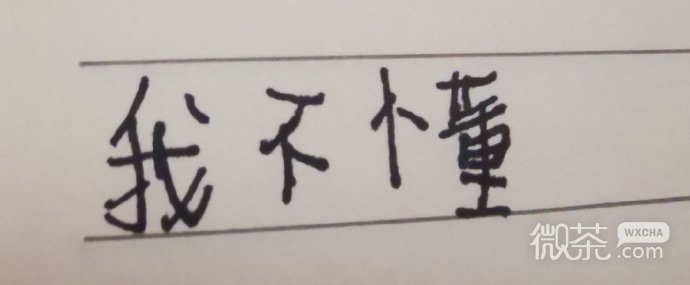 我不懂
微茶 WXCHA